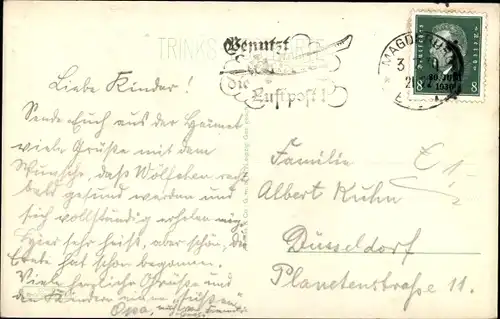 TRINKS
Benutzt
die
Luftpost!
MAGDEBURG
30. JUNI
1930
8 8
Liebe Kinder!
Sende Euch aus der Heimat
viele Grüße mit dem
Wunsche, daß Wölfchen recht
bald gesund werden und
sich vollständig erholen mög.
Hier sehr heiß, aber schön, die
Ernte hat schon begonnen.
Viele herzliche Grüße und
den Kindern
Opa,
Familie
Albert Kuhn
Düsseldorf
Planetenstraße 11.